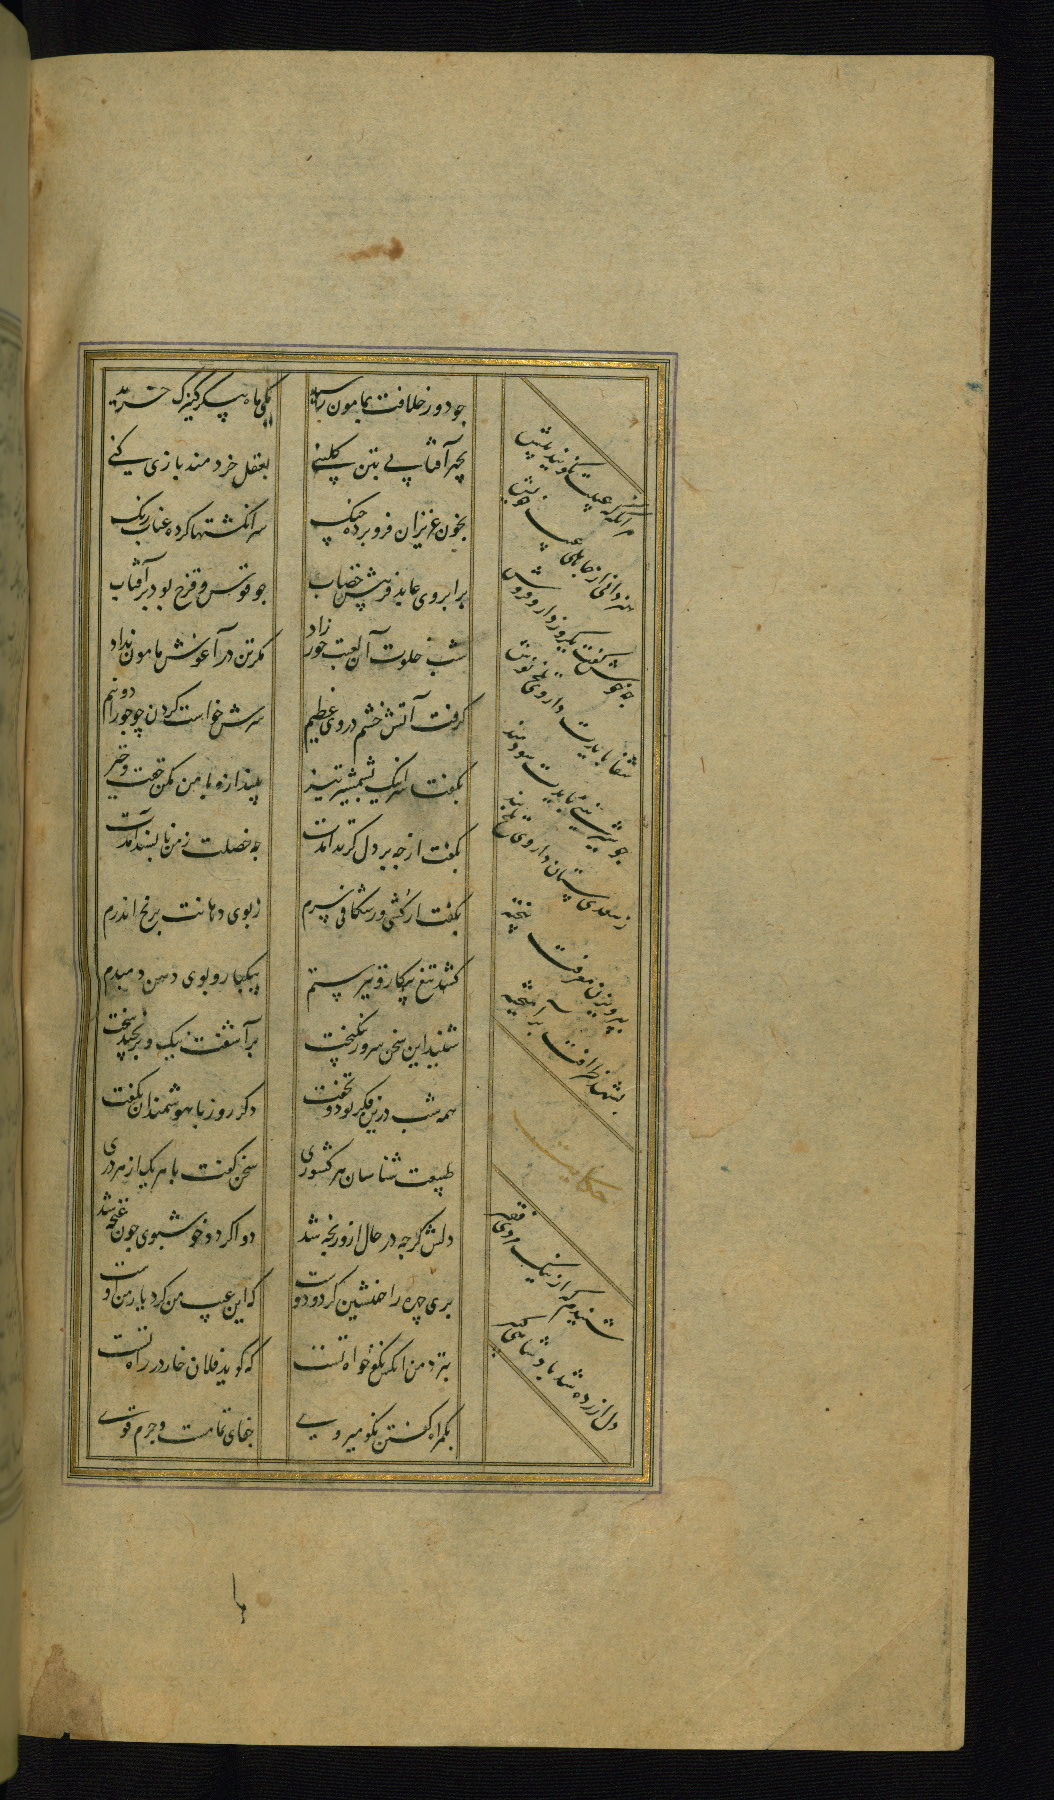 چو دور خلافت بمامون رسید یکی ماه پیکر کنیزک خرید
بچهر آفتابی بتن گلبنی بعقل خردمند بازی کنی
بخون عزیزان فرو برده چنگ سر انگشتها کرده عناب رنگ
بر ابروی عابد فریبش خضاب چو قوس قزح بود بر آفتاب
شب خلوت آن لعبت حورزاد مگر تن در آغوش مامون نداد
گرفت آتش خشم در وی عظیم سرش خواست کردن چو جوزا دو نیم
بگفت سر اینک بشمشیر تیز بینداز و با من مکن خفت و خیز
بگفت از چه بر دل گزند آمدت چه خصلت ز من ناپسند آمدت
بگفت ار کشی ور شکافی سرم ز بوی دهانت برنج اندرم
کشد تیغ پیکار و تیر ستم بیکبار و بوی دهن دمبدم
شنید این سخن سرور نیکبخت برآشفت نیک و برنجید سخت
همه شب درین فکر بود و نخفت دگر روز با هوشمندان بگفت
طبیعت شناسان هر کشوری سخن گفت با هر یک از هر دری
دلش گرچه در حال ازو رنجه شد دوا کرد و خوشبوی چون غنچه شد
پری چهره را همنشین کرد و دوست که این عیب من گرد یار من اوست
بنزد من آنکس نکوخواه تست که گوید فلان خار در راه تست
بگمراه گفتن نکو میروی جفای تمامست و جرم قوی
هر آنگه که عیبت نگویند پیش
هنر دانی از جاهلی عیب خویش
چه خوش گفت یکروز دارو فروش
شفا بایدت داروی تلخ نوش
پرویزن معرفت بیخته
بشهد ظرافت برآمیخته
حکایت
شنیدم که از نیک مردی فقیر
دل آزرده شد پادشاهی کبیر